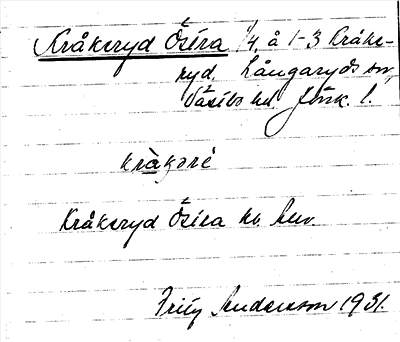 Kråkeryd Östra 1/4 å 1-3 Kråke-
ryd. Långaryds sn,
Västbo hd Jönk. l.
kràkərè
Kråkeryd Östra
Fritz Andersson 1931.